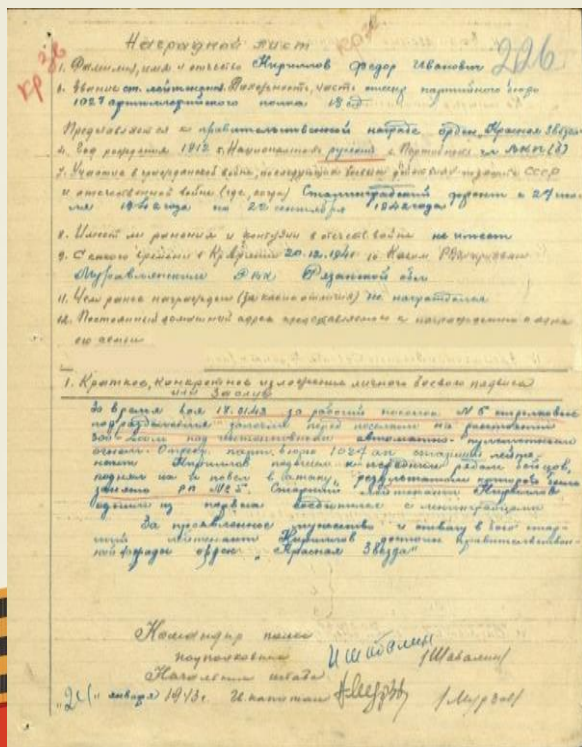 кр Зв
кр Зв
226
Наградной лист
1. Фамилия, имя и отчество Кириллов Федор Иванович
2. Звание ст. лейтенант. Должность, часть отсекр партийного бюро
1027 артиллерийского полка 18 сд
Представляется к правительственной награде орден „Красная Звезда
4. Год рождения 1912 5. Национальность русский 6. Партийность чл ВКП(б)
7. Участие в гражданской войне, последующих боевых действиях по защите СССР
и отечественной войне (где, когда) Сталинградский фронт с 27 ию-
ля 1942 года по 22 сентября 1942 года
8. Имеет ли ранения и контузии в отечеств. войне не имеет
9. С какого времени в Кр. Армии 20.12.1941 10. Каким РВК призван
Муравлянским РВК Рязанской обл
11. Чем ранее награжден (за какие отличия) не награждался
12. Постоянный домашний адрес представляемого к награждению и адрес
его семьи
1. Краткое, конкретное изложение личного боевого подвига
или заслуг
За время боя 17.01.43 за рабочий поселок №5 стрелковые
подразделения залегли перед поселком на расстоянии
300-200м под интенсивным автоматно-пулеметным
огнем. Отсекр. парт. бюро 1027 ап старший лейте-
нант Кириллов подошел к передним рядам бойцов,
поднял их и повел в атаку, результатом которой было
занято РП №5. Старший лейтенант Кириллов
одним из первых соединился с ленинградцами
За проявленное мужество и отвагу в бою стар-
ший лейтенант Кириллов достоин правительствен-
ной награды орден „Красная Звезда"
Командир полка
подполковник Шабалин /Шабалин/
Начальник штаба
„21" января 1943г. капитан Мурзов /Мурзов/